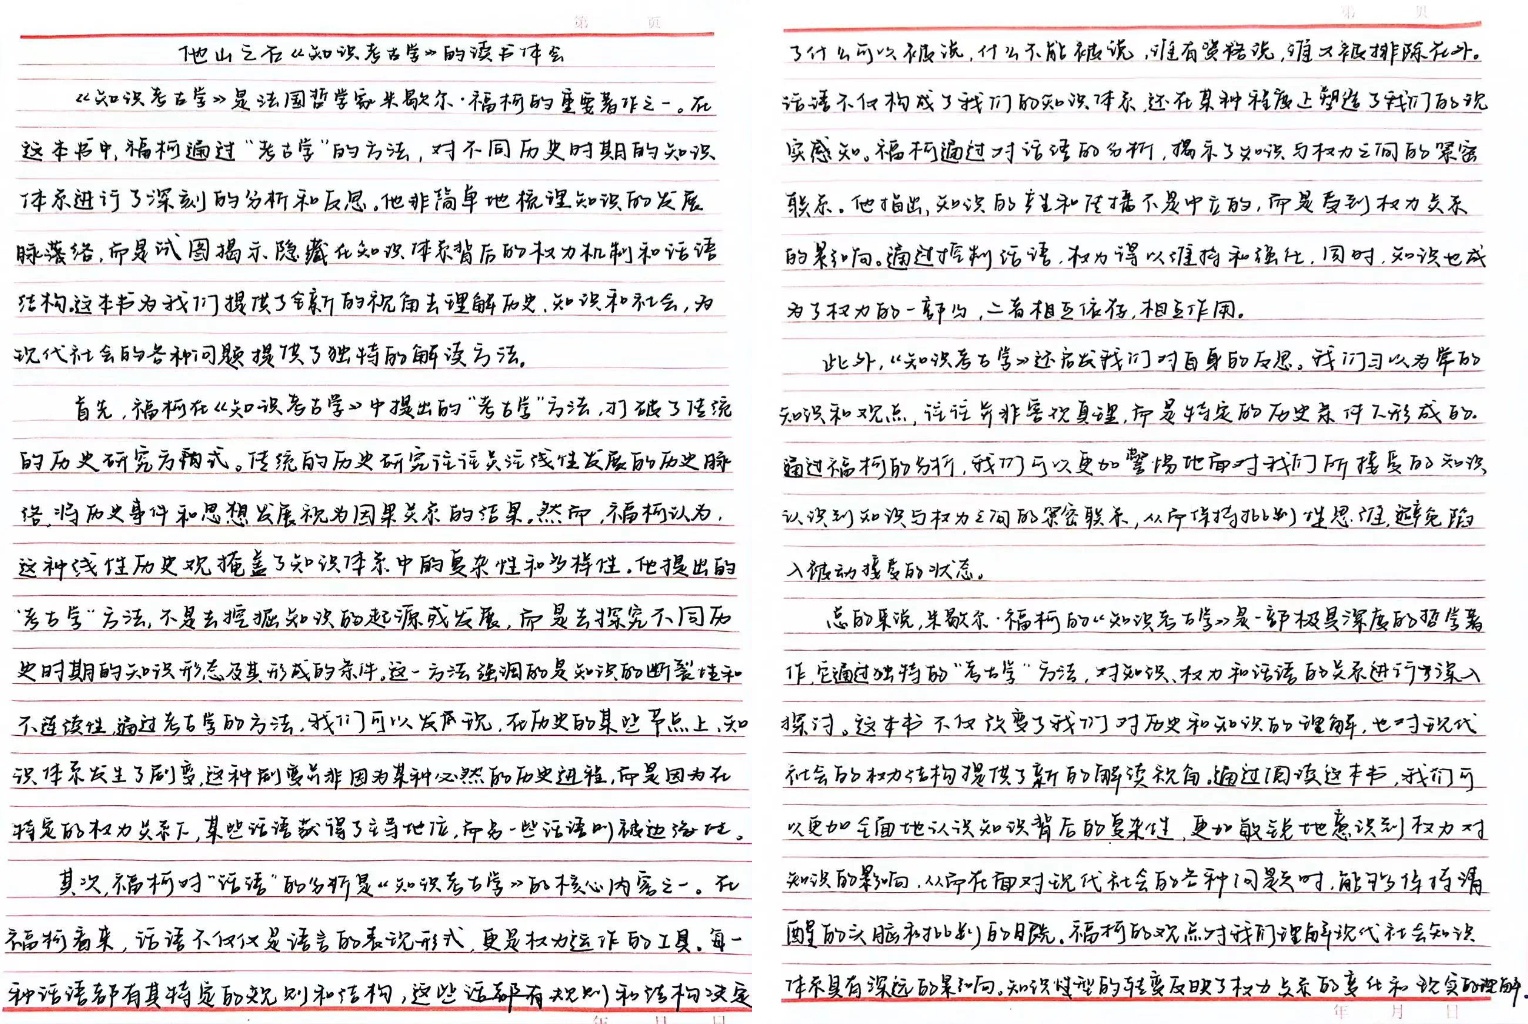 第 页
他山之石《知识考古学》的读书体会
《知识考古学》是法国哲学家米歇尔·福柯的重要著作之一。在
这本书中,福柯通过"考古学"的方法,对不同历史时期的知识
体系进行了深刻的分析和反思。他非简单地梳理知识的发展
脉落络,而是试图揭示隐藏在知识体系背后的权力机制和话语
结构。这本书为我们提供了全新的视角去理解历史、知识和社会,为
现代社会的各种问题提供了独特的解读方法。
首先,福柯在《知识考古学》中提出的"考古学"方法,打破了传统
的历史研究方式。传统的历史研究往往关注线性发展的历史脉
络,将历史事件和思想发展视为因果关系的结果。然而,福柯认为,
这种线性历史观掩盖了知识体系中的复杂性和多样性。他提出的
"考古学"方法,不是去挖掘知识的起源或发展,而是去探究不同历
史时期的知识形态及其形成的条件。这一方法强调的是知识的断裂性和
不连续性,通过考古学的方法,我们可以发现,在历史的某些节点上,知
识体系发生了剧变,这种剧变并非因为某种必然的历史进程,而是因为在
特定的权力关系下,某些话语获得了主导地位,而另一些话语则被边缘化。
其次,福柯对"话语"的分析是《知识考古学》的核心内容之一。在
福柯看来,话语不仅仅是语言的表现形式,更是权力运作的工具。每一
种话语都有其特定的规则和结构,这些话都有规则和结构决定
年 月 日
第 页
了什么可以被说,什么不能被说,谁有资格说,谁又被排除在外。
话语不仅构成了我们的知识体系,还在某种程度上塑造了我们的现
实感知。福柯通过对话语的分析,揭示了知识与权力之间的紧密
联系。他指出,知识的产生和传播不是中立的,而是受到权力关系
的影响。通过控制话语,权力得以维持和强化,同时,知识也成
为了权力的一部分,二者相互依存,相互作用。
此外,《知识考古学》还启发我们对自身的反思。我们习以为常的
知识和观点,往往并非客观真理,而是特定的历史条件下形成的。
通过福柯的分析,我们可以更加警惕地面对我们所接受的知识
认识到知识与权力之间的紧密联系,从而保持批判性思维,避免陷
入被动接受的状态。
总的来说,米歇尔·福柯的《知识考古学》是一部极具深度的哲学著
作,它通过独特的"考古学"方法,对知识、权力和话语的关系进行了深入
探讨。这本书不仅改变了我们对历史和知识的理解,也对现代
社会的权力结构提供了新的解读视角。通过阅读这本书,我们可
以更加全面地认识知识背后的复杂性,更加敏锐地意识到权力对
知识的影响,从而在面对现代社会的各种问题时,能够保持清
醒的头脑和批判的眼光。福柯的观点对我们理解现代社会知识
体系具有深远的影响。知识类型的转变反映了权力关系的变化和现实的理解。
年 月 日